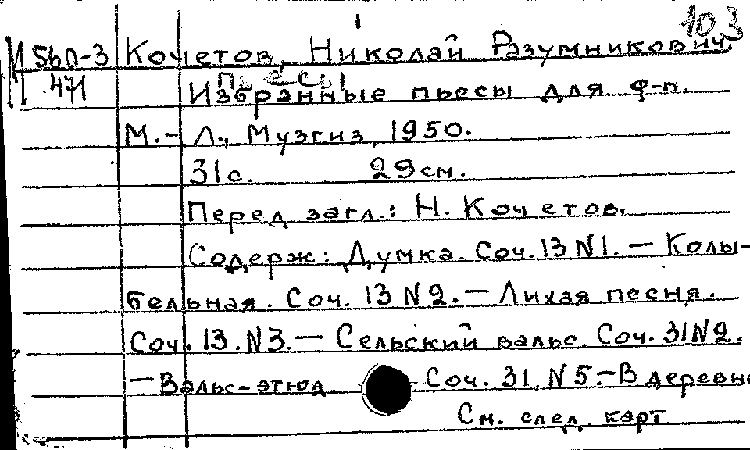 103
М 5бп-3 Кочетов, Николай Разумникович.
471 Пьесы
Избранные пьесы для ф-п.
М.-Л., Музгиз, 1950.
31с. 29см.
Перед загл.: Н. Кочетов.
Содерж: Думка. Соч. 13 N1. — Колы-
бельная. Соч. 13 N2. — Лихая песня.
Соч. 13. N3. — Сельский вальс. Соч. 31 N2.
— Вальс-этюд Соч. 31 N5.-В деревне
См. след. карт